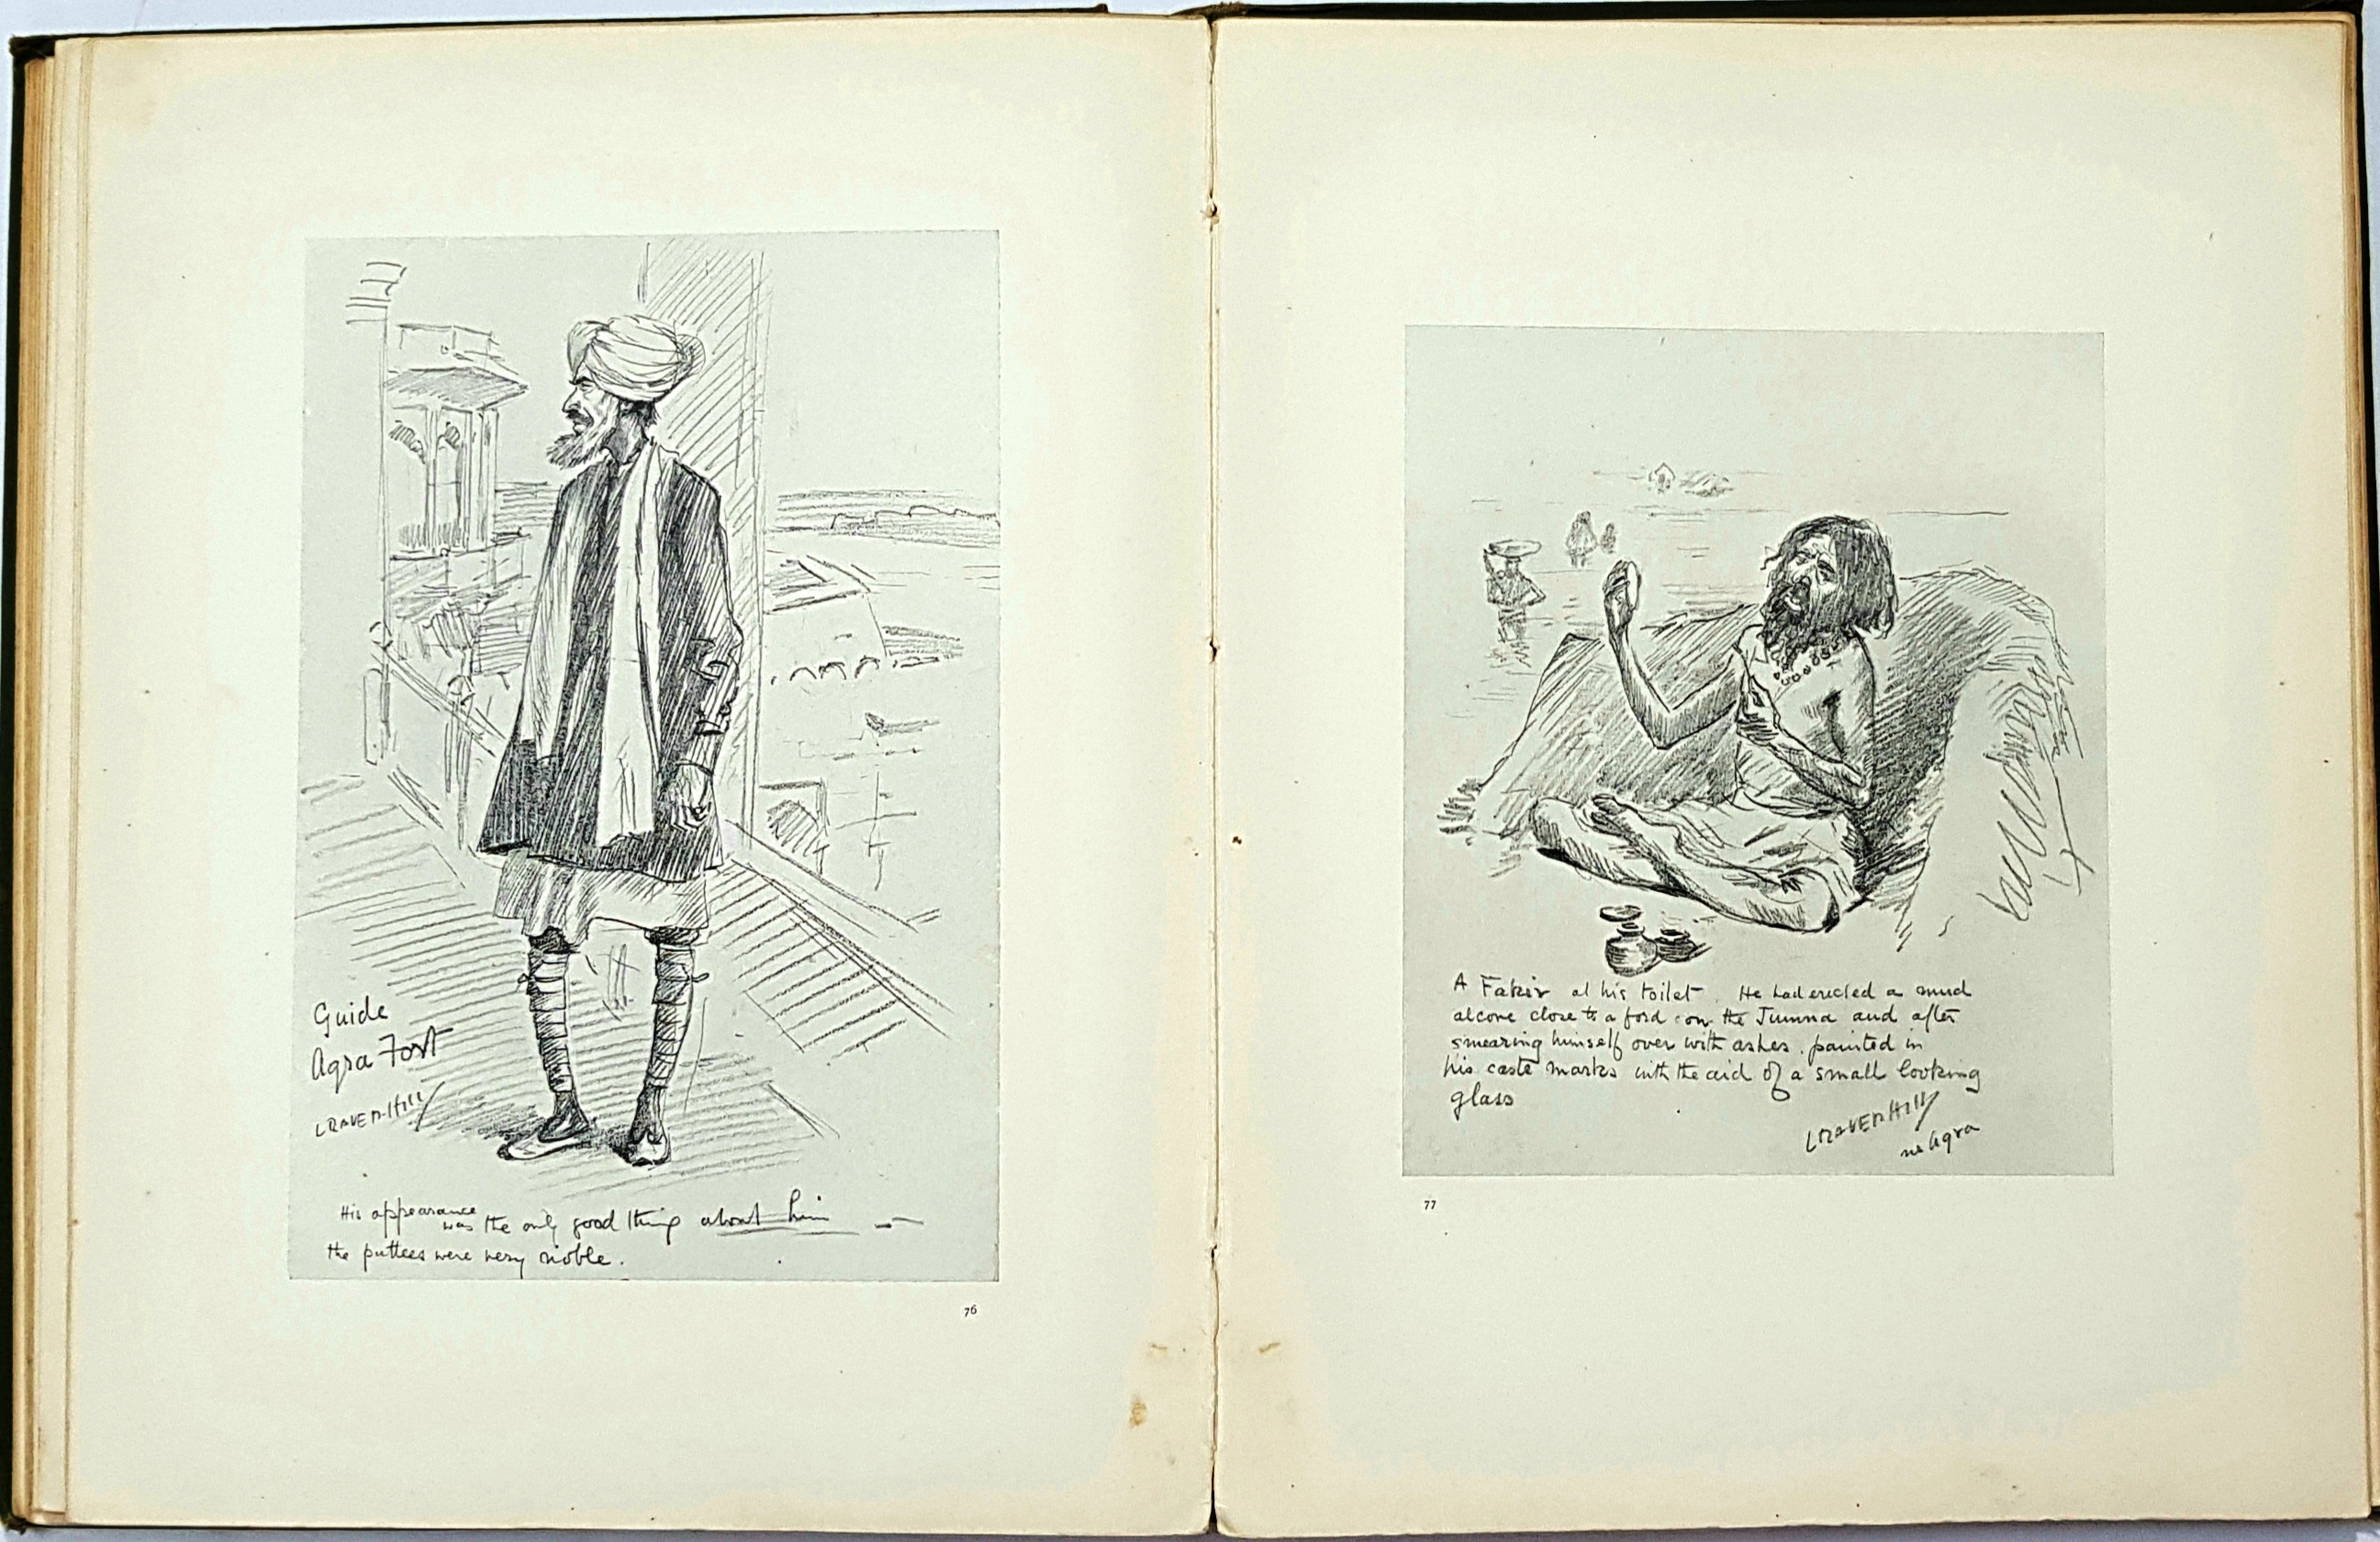 Guide
Agra Fort
L RAVEN-Hill
His appearance
was the only good thing about him —
the puttees were very noble.
76
A Fakir at his toilet. He had erected a mud
alcove close to a ford on the Jumna and after
smearing himself over with ashes. painted in
his caste marks with the aid of a small looking
glass
L RAVEN Hill
nr Agra
77